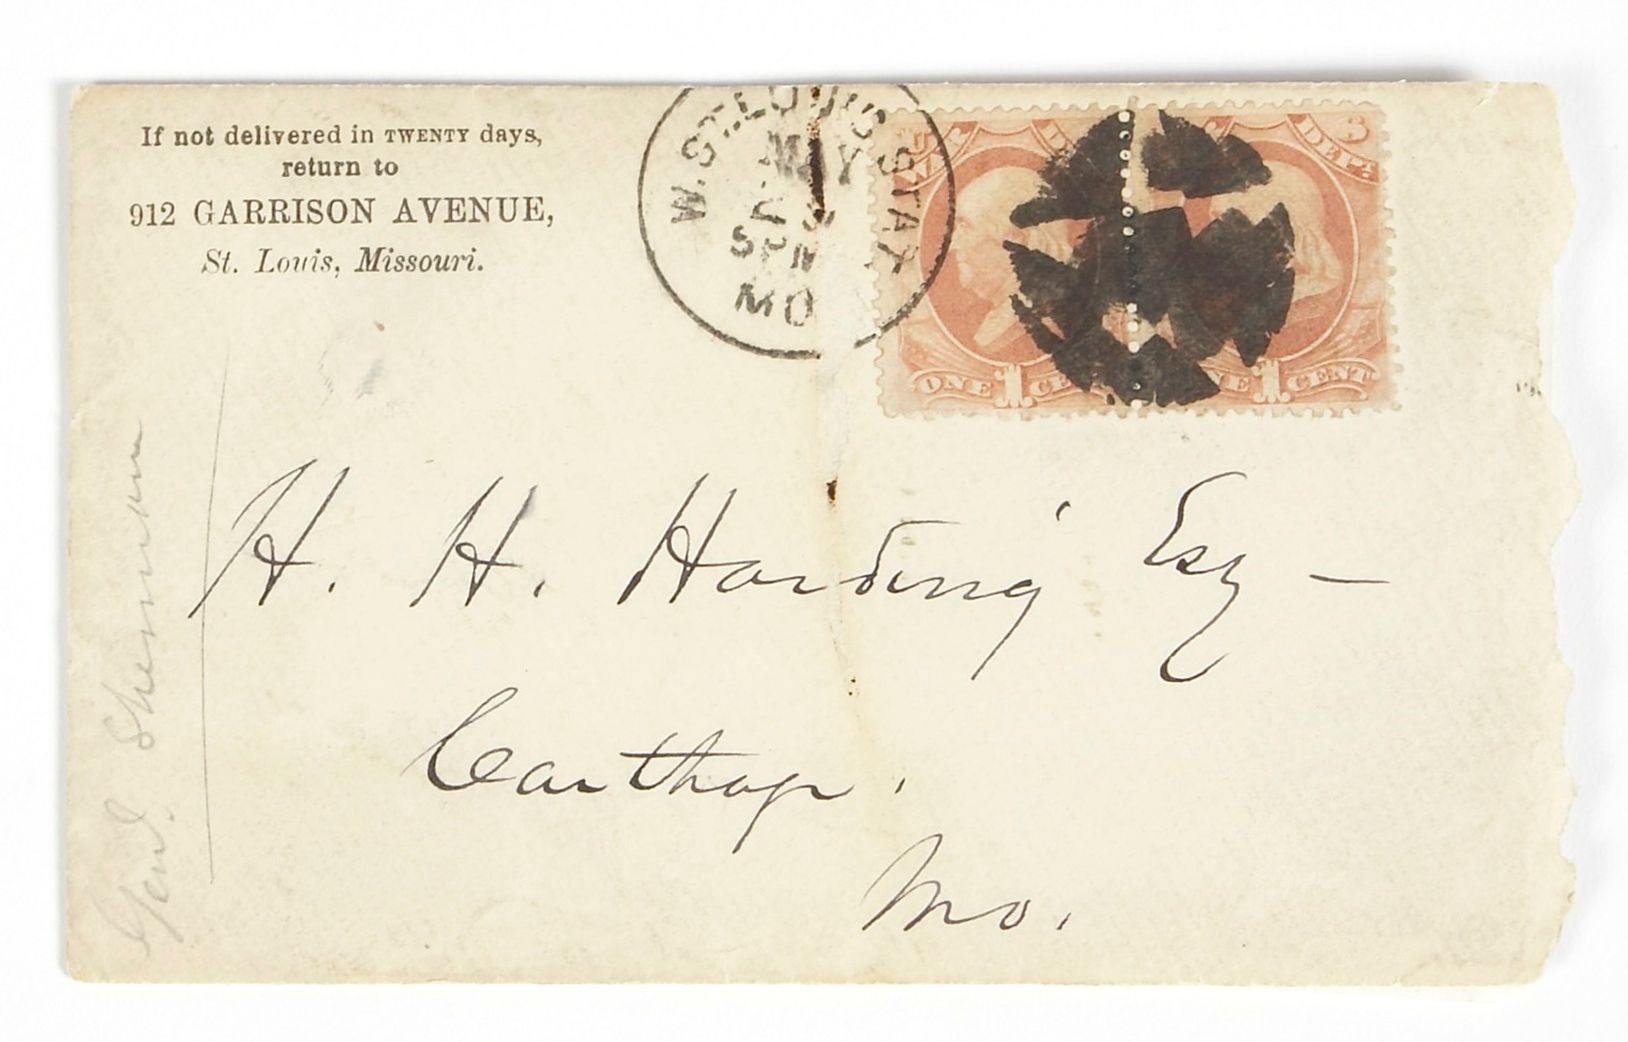 If not delivered in TWENTY days,
return to
912 GARRISON AVENUE,
St. Louis, Missouri.
W. ST. LOUIS STA.
MAY
5 PM
MO
U. S.
WAR DEPT.
ONE 1 CENT
ONE 1 CENT
H. H. Harding Esq —
Carthage.
Mo.
Genl. Sherman